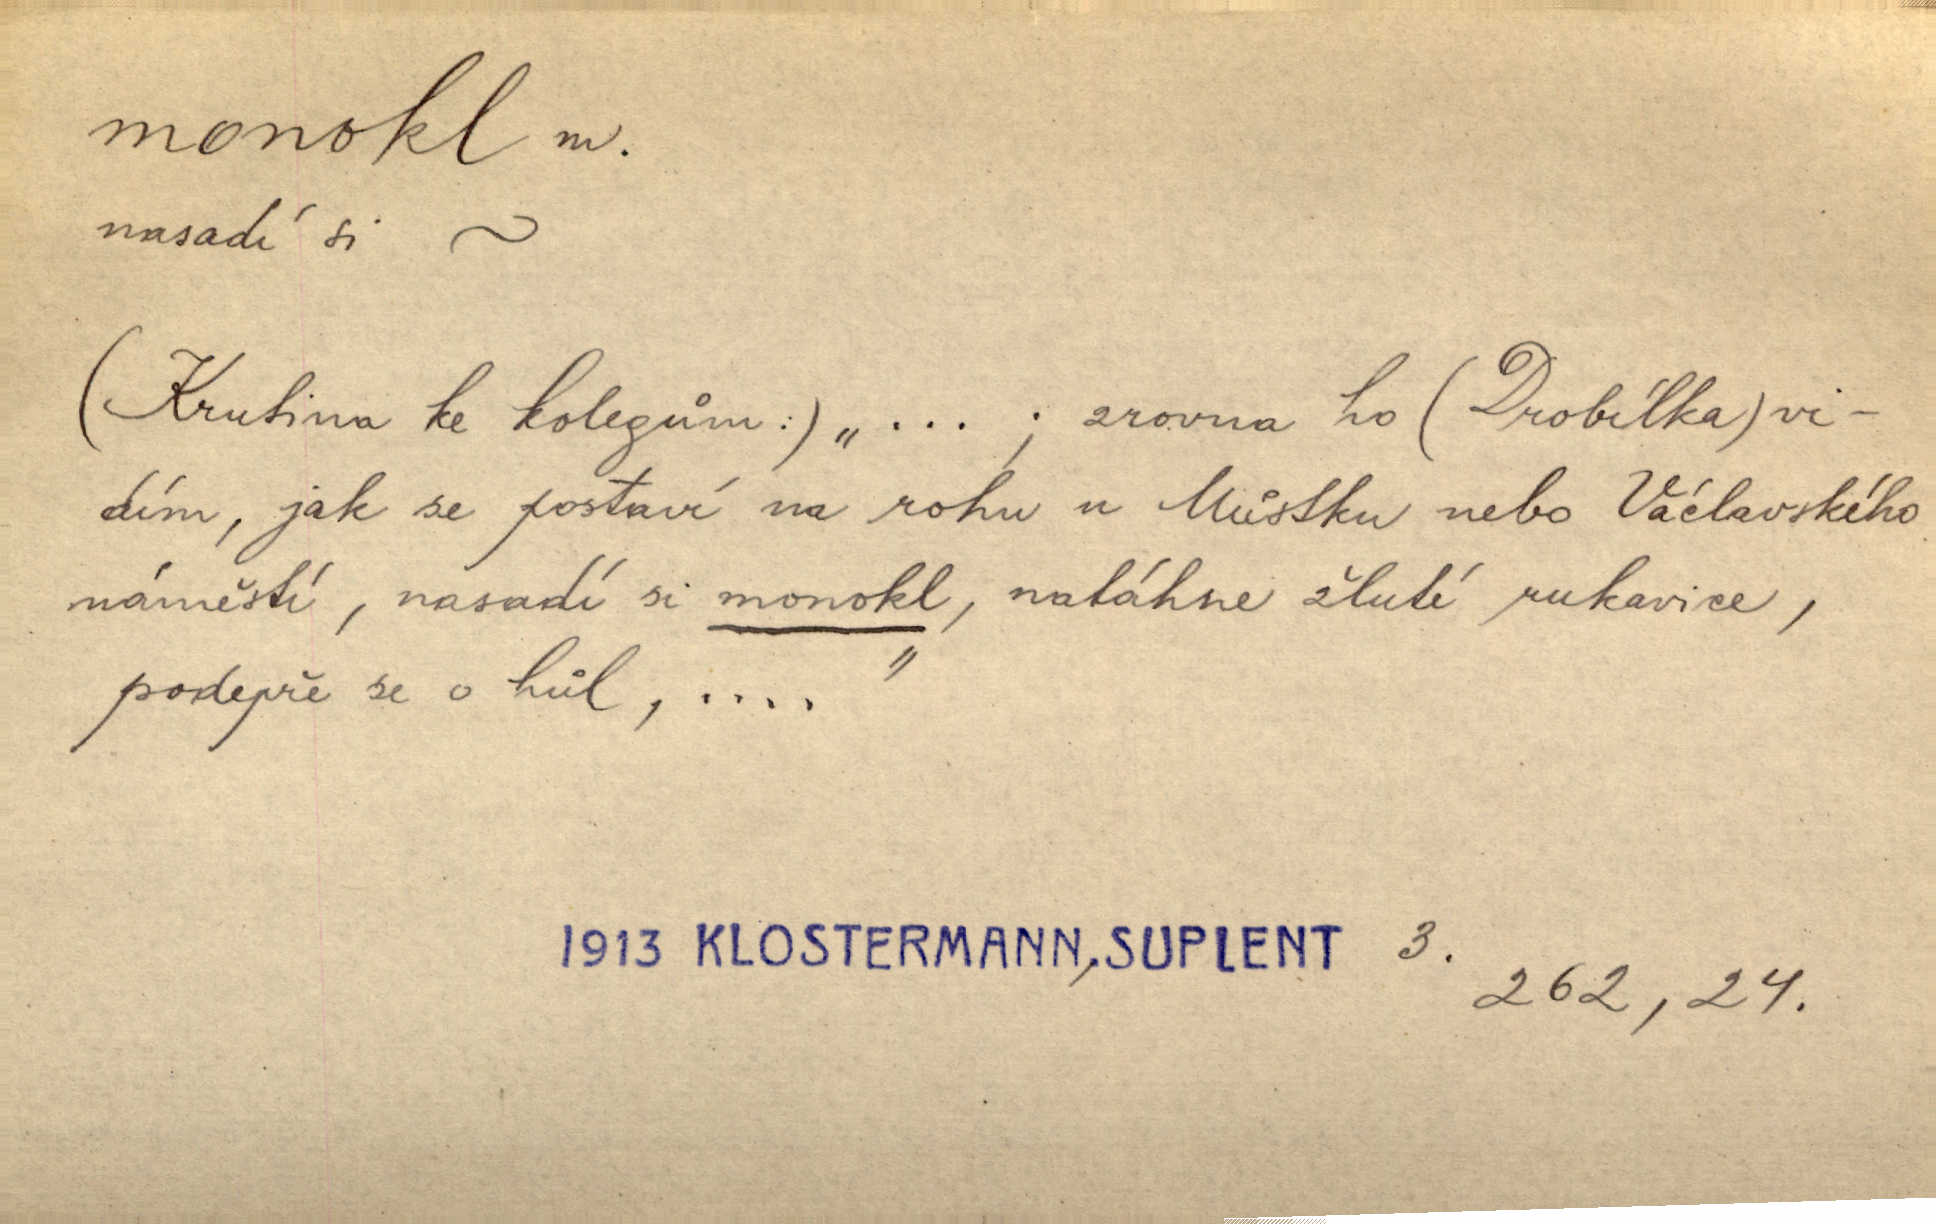 monokl m.
nasadí si ~
(Krušina ke kolegům:) „ . . . ; zrovna ho (Drobílka) vi-
dím, jak se postaví na rohu u Můstku nebo Václavského
náměstí, nasadí si monokl, natáhne žluté rukavice,
podepře se o hůl, . . . . "
1913 KLOSTERMANN, SUPLENT 3.
262, 24.